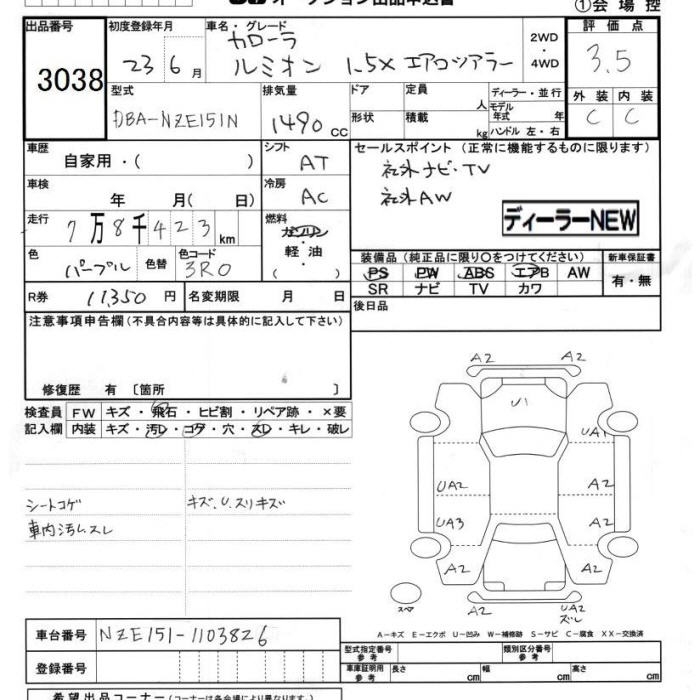 オークション出品申込書
①会 場 控
出品番号 3038
初度登録年月 23 年 6 月
車名・グレード カローラ
ルミオン 1.5X エアロツアラー
2WD
・
4WD
評 価 点
3.5
外 装 内 装
C C
型式
DBA-NZE151N
排気量
1490 cc
ドア
形状
定員 人
積載 kg
ディーラー・並 行
モデル
年式 年
ハンドル 左・右
車歴
自家用・( )
シフト
AT
車検
年 月( 日)
冷房
AC
走行
7万8千423 km
燃料
ガソリン
・
軽 油
( )
色 パープル 色替 色コード
3R0
R券 11,350 円 名変期限 月 日
セールスポイント (正常に機能するものに限ります)
社外ナビ・TV
社外AW
ディーラーNEW
装備品(純正品に限り○をつけてください) 新車保証書
PS PW ABS エアB AW
SR ナビ TV カワ
有・無
後日品
注意事項申告欄(不具合内容等は具体的に記入して下さい)
修復歴 有 〔箇所 〕
検査員 FW キズ・飛石・ヒビ割・リペア跡・×要
記入欄 内装 キズ・汚レ・コゲ・穴・スレ・キレ・破レ
シートコゲ キズ、U、スリキズ
車内汚レ、スレ
A2 A2
U1
UA1
UA2 A2
UA3 A2
A2 A2
スペア
A2 UA2
ズレ
A-キズ E-エクボ U-凹み W-補修跡 S-サビ C-腐食 XX-交換済
車台番号 NZE151-1103826
登録番号
型式指定番号
参 考
類別区分番号
参 考
車庫証明用
参 考
長さ cm 幅 cm 高さ cm
希望出品コーナー(コーナーは各会場により異なります。)